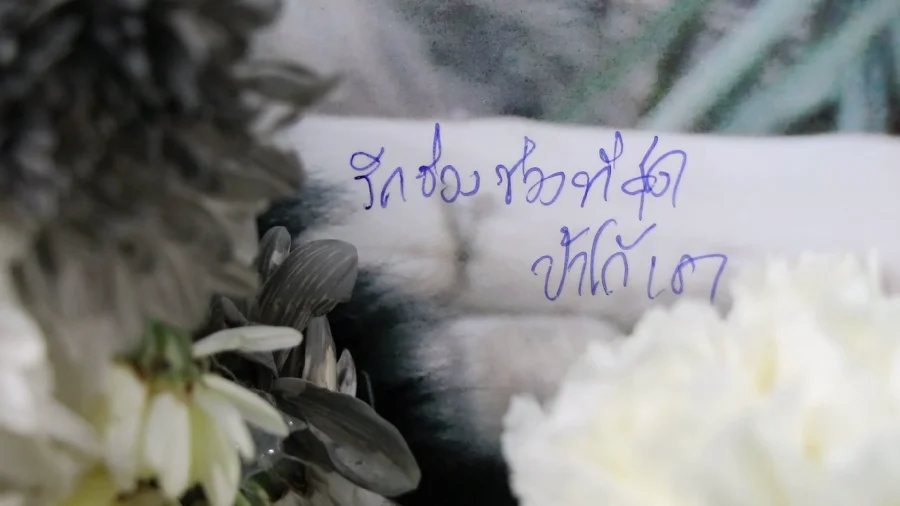 รักช่วง ช่วงที่สุด
ป้าโก้ เอา